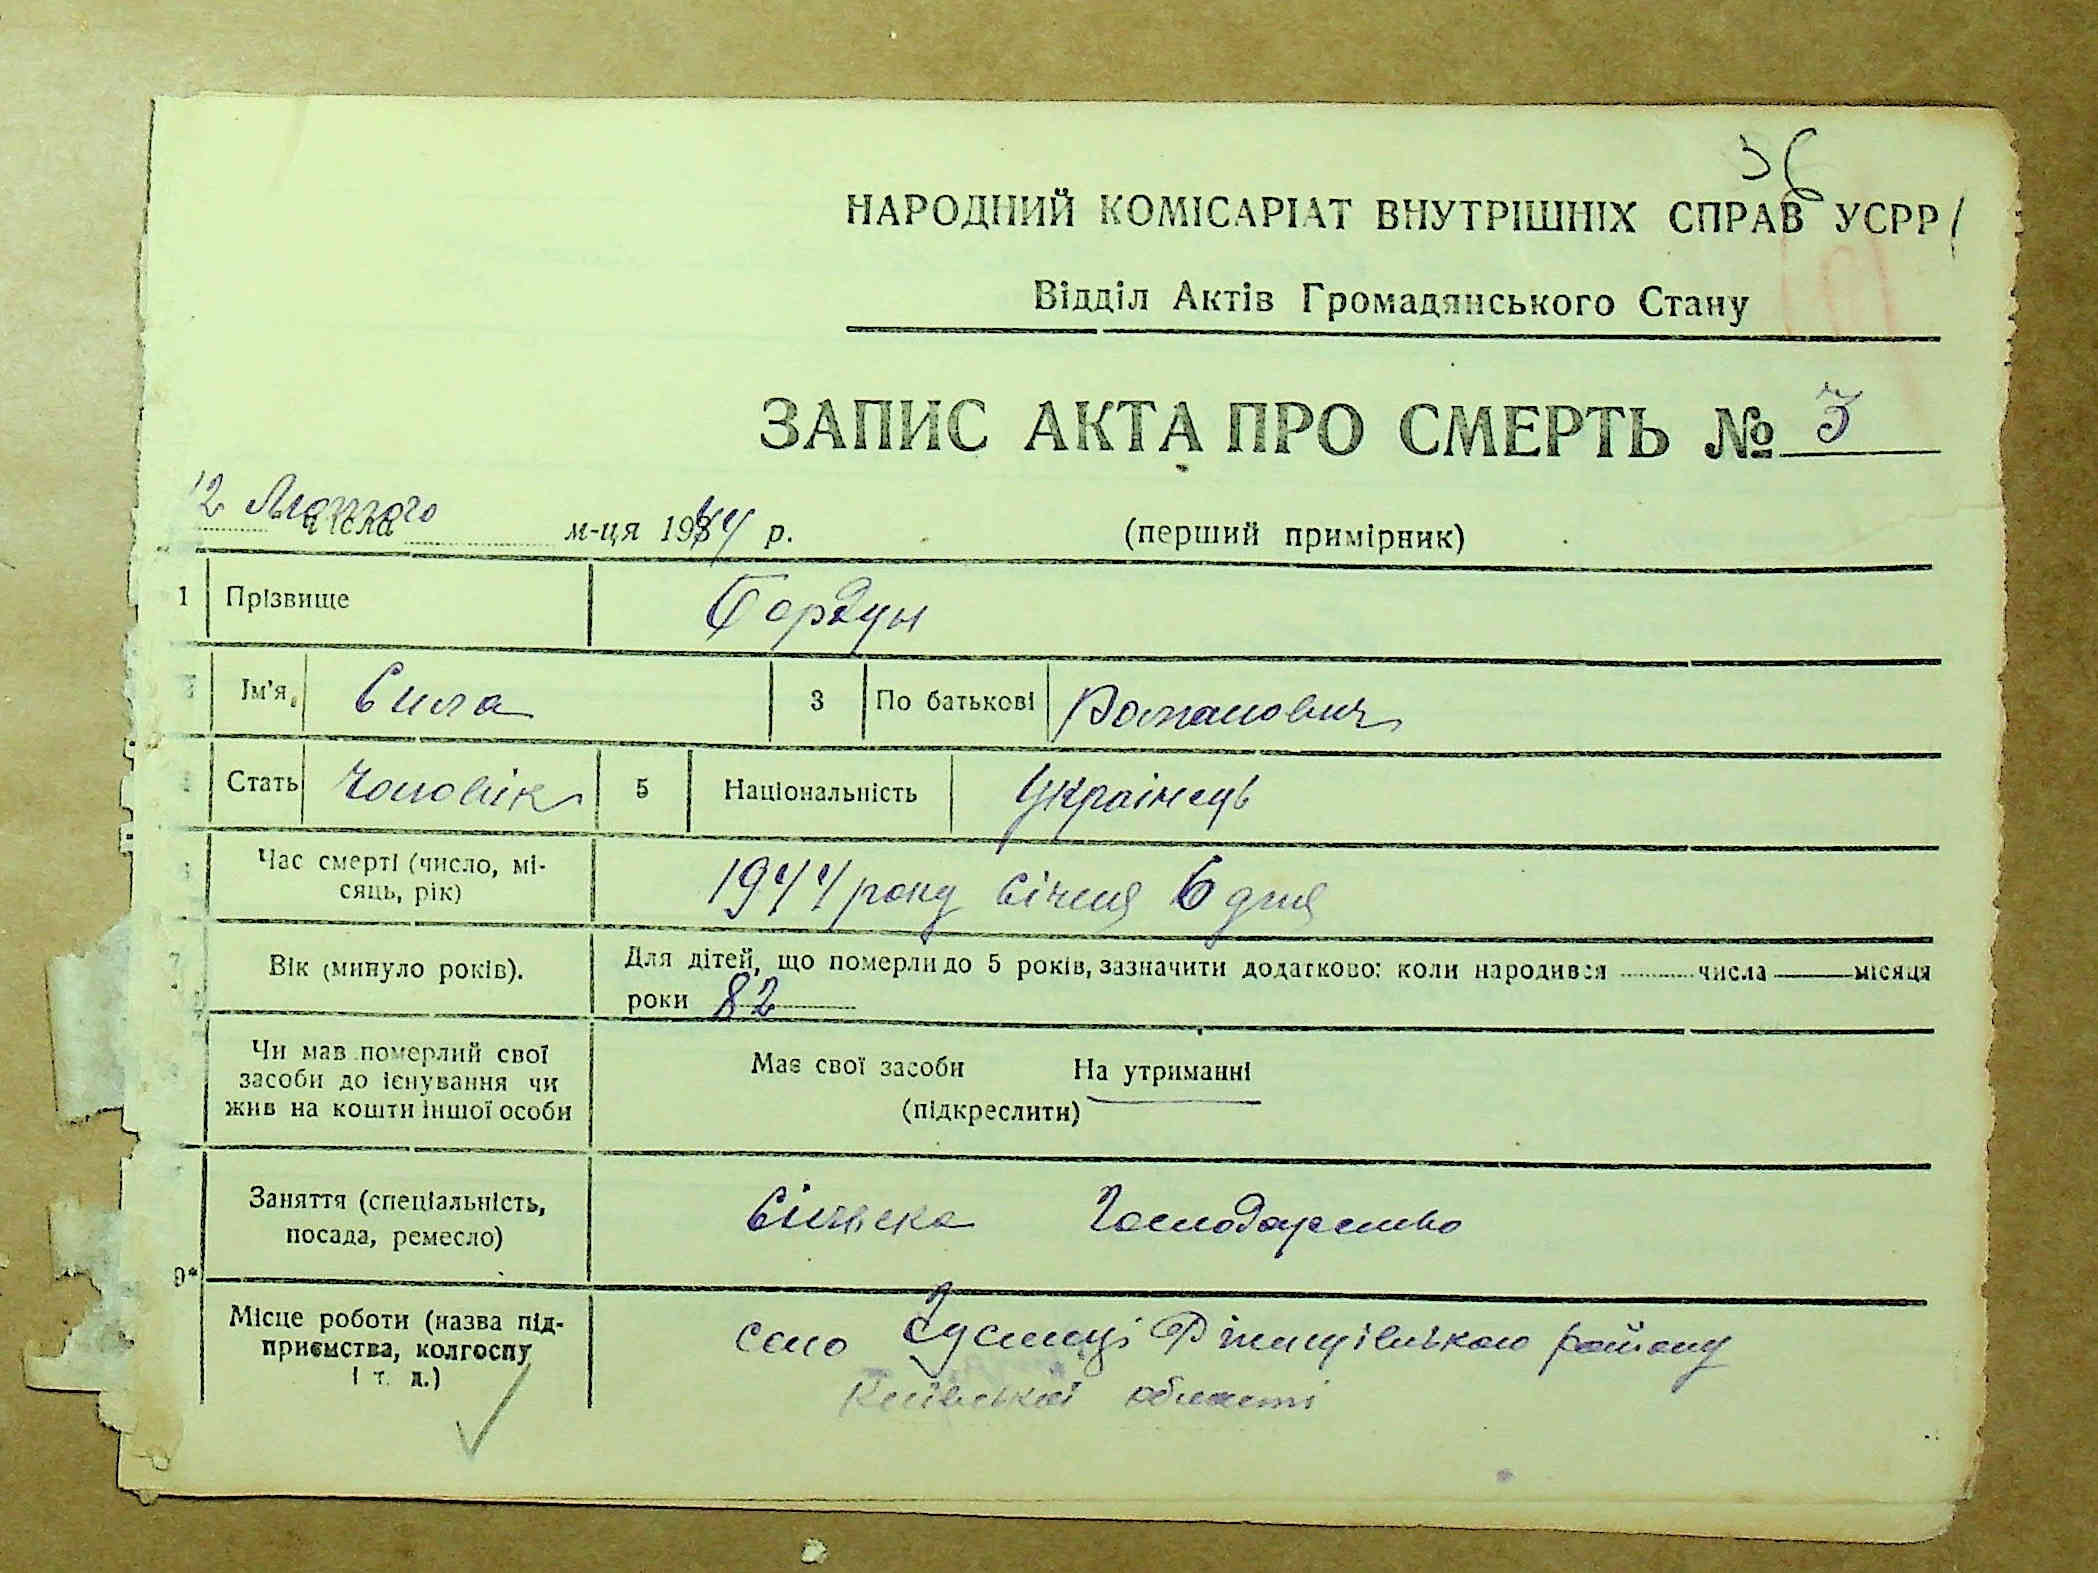 36
НАРОДНИЙ КОМІСАРІАТ ВНУТРІШНІХ СПРАВ УСРР
Відділ Актів Громадянського Стану
ЗАПИС АКТА ПРО СМЕРТЬ № 3
12 Лютого числа м-ця 1944 р. (перший примірник)
1 Прізвище Бордун
Ім'я Сила 3 По батькові Романович
Стать Чоловік 5 Національність Українець
Час смерті (число, мі-
сяць, рік) 1944 року Січня 6 дня
7 Вік (минуло років). Для дітей, що померли до 5 років, зазначити додатково: коли народився числа місяця
роки 82
Чи мав померлий свої
засоби до існування чи
жив на кошти іншої особи
Має свої засоби На утриманні
(підкреслити)
Заняття (спеціальність,
посада, ремесло) Сільска Господарство
9*
Місце роботи (назва під-
приємства, колгоспу
і т. д.)
село району
Київської області